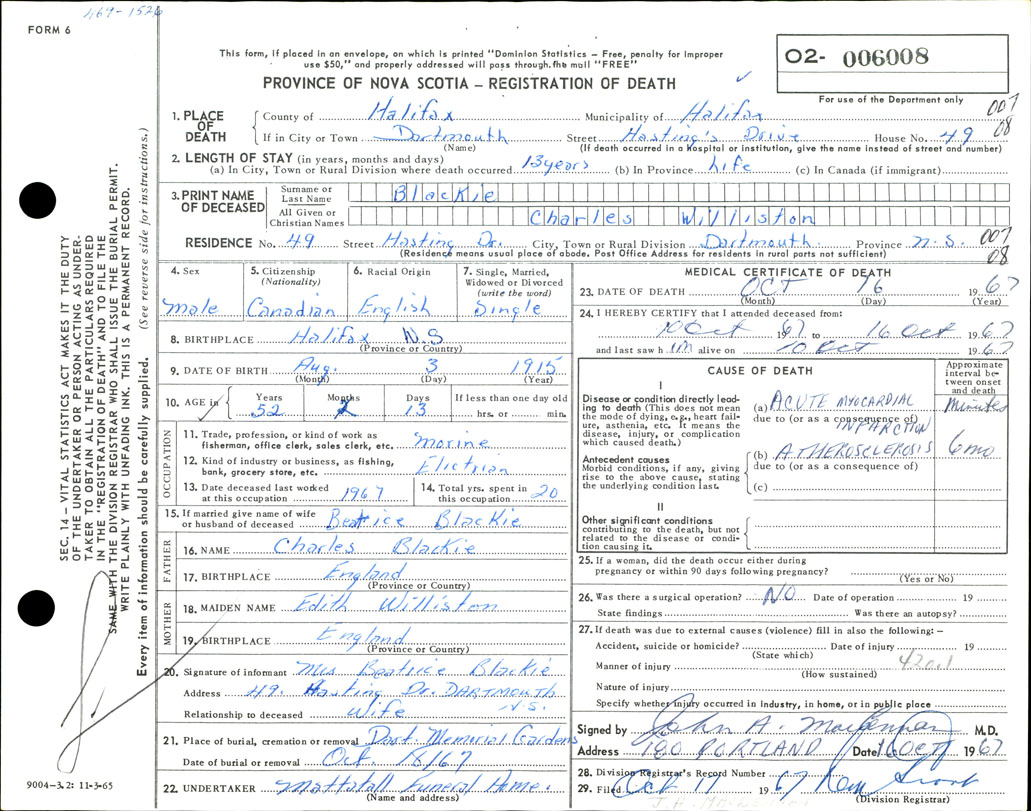 469-1526
FORM 6
This form, if placed in an envelope, on which is printed "Dominion Statistics – Free, penalty for improper
use $50," and properly addressed will pass through the mail "FREE"
PROVINCE OF NOVA SCOTIA – REGISTRATION OF DEATH
O2- 006008
For use of the Department only
007
08
1. PLACE OF DEATH
County of Halifax Municipality of Halifax
If in City or Town Dartmouth Street Hasting's Drive House No. 49
(Name) (If death occurred in a Hospital or institution, give the name instead of street and number)
2. LENGTH OF STAY (in years, months and days)
(a) In City, Town or Rural Division where death occurred 13 years (b) In Province Life (c) In Canada (if immigrant)
3. PRINT NAME OF DECEASED
Surname or Last Name Blackie
All Given or Christian Names Charles Williston
RESIDENCE No. 49 Street Hasting Dr. City, Town or Rural Division Dartmouth Province N.S.
007
08
(Residence means usual place of abode. Post Office Address for residents in rural parts not sufficient)
4. Sex
male
5. Citizenship (Nationality)
Canadian
6. Racial Origin
English
7. Single, Married, Widowed or Divorced (write the word)
Single
8. BIRTHPLACE Halifax N.S
(Province or Country)
9. DATE OF BIRTH Aug. 3 1915
(Month) (Day) (Year)
10. AGE in Years 52 Months 2 Days 13 If less than one day old
hrs. or min.
OCCUPATION
11. Trade, profession, or kind of work as fisherman, office clerk, sales clerk, etc. marine
12. Kind of industry or business, as fishing, bank, grocery store, etc. Elictrian
13. Date deceased last worked at this occupation 1967
14. Total yrs. spent in this occupation 20
15. If married give name of wife or husband of deceased Beatrice Blackie
FATHER
16. NAME Charles Blackie
17. BIRTHPLACE England
(Province or Country)
MOTHER
18. MAIDEN NAME Edith Williston
19. BIRTHPLACE England
(Province or Country)
20. Signature of informant Mrs Beatrice Blackie
Address 49. Hasting Dr. DARTMOUTH
N.S.
Relationship to deceased Wife
21. Place of burial, cremation or removal Dart. Memorial Gardens
Date of burial or removal Oct. 18/67
22. UNDERTAKER Mattatall Funeral Home.
(Name and address)
MEDICAL CERTIFICATE OF DEATH
23. DATE OF DEATH OCT 16 1967
(Month) (Day) (Year)
24. I HEREBY CERTIFY that I attended deceased from:
10 Oct 67 to 16 Oct 1967
and last saw him alive on 10 Oct 1967
CAUSE OF DEATH
Approximate interval between onset and death
I
Disease or condition directly leading to death (This does not mean the mode of dying, e.g., heart failure, asthenia, etc. It means the disease, injury, or complication which caused death.)
(a) ACUTE MYOCARDIAL Minutes
due to (or as a consequence of)
INFARCTION
Antecedent causes
Morbid conditions, if any, giving rise to the above cause, stating the underlying condition last.
(b) ATHEROSCLEROSIS 6 mo
due to (or as a consequence of)
(c)
II
Other significant conditions
contributing to the death, but not related to the disease or condition causing it.
25. If a woman, did the death occur either during
pregnancy or within 90 days following pregnancy?
(Yes or No)
26. Was there a surgical operation? NO Date of operation 19
State findings Was there an autopsy?
27. If death was due to external causes (violence) fill in also the following: –
Accident, suicide or homicide? Date of injury 19
(State which)
Manner of injury 420.1
(How sustained)
Nature of injury
Specify whether injury occurred in industry, in home, or in public place
Signed by John A. M.D.
Address 180 PORTLAND Date 16 OCT 1967
28. Division Registrar's Record Number
29. Filed Oct 17 1967
(Division Registrar)
SEC. 14 – VITAL STATISTICS ACT MAKES IT THE DUTY
OF THE UNDERTAKER OR PERSON ACTING AS UNDER-
TAKER TO OBTAIN ALL THE PARTICULARS REQUIRED
IN THE "REGISTRATION OF DEATH" AND TO FILE THE
SAME WITH THE DIVISION REGISTRAR WHO SHALL ISSUE THE BURIAL PERMIT.
WRITE PLAINLY WITH UNFADING INK. THIS IS A PERMANENT RECORD.
Every item of information should be carefully supplied. (See reverse side for instructions.)
9004-3.2: 11-3-65